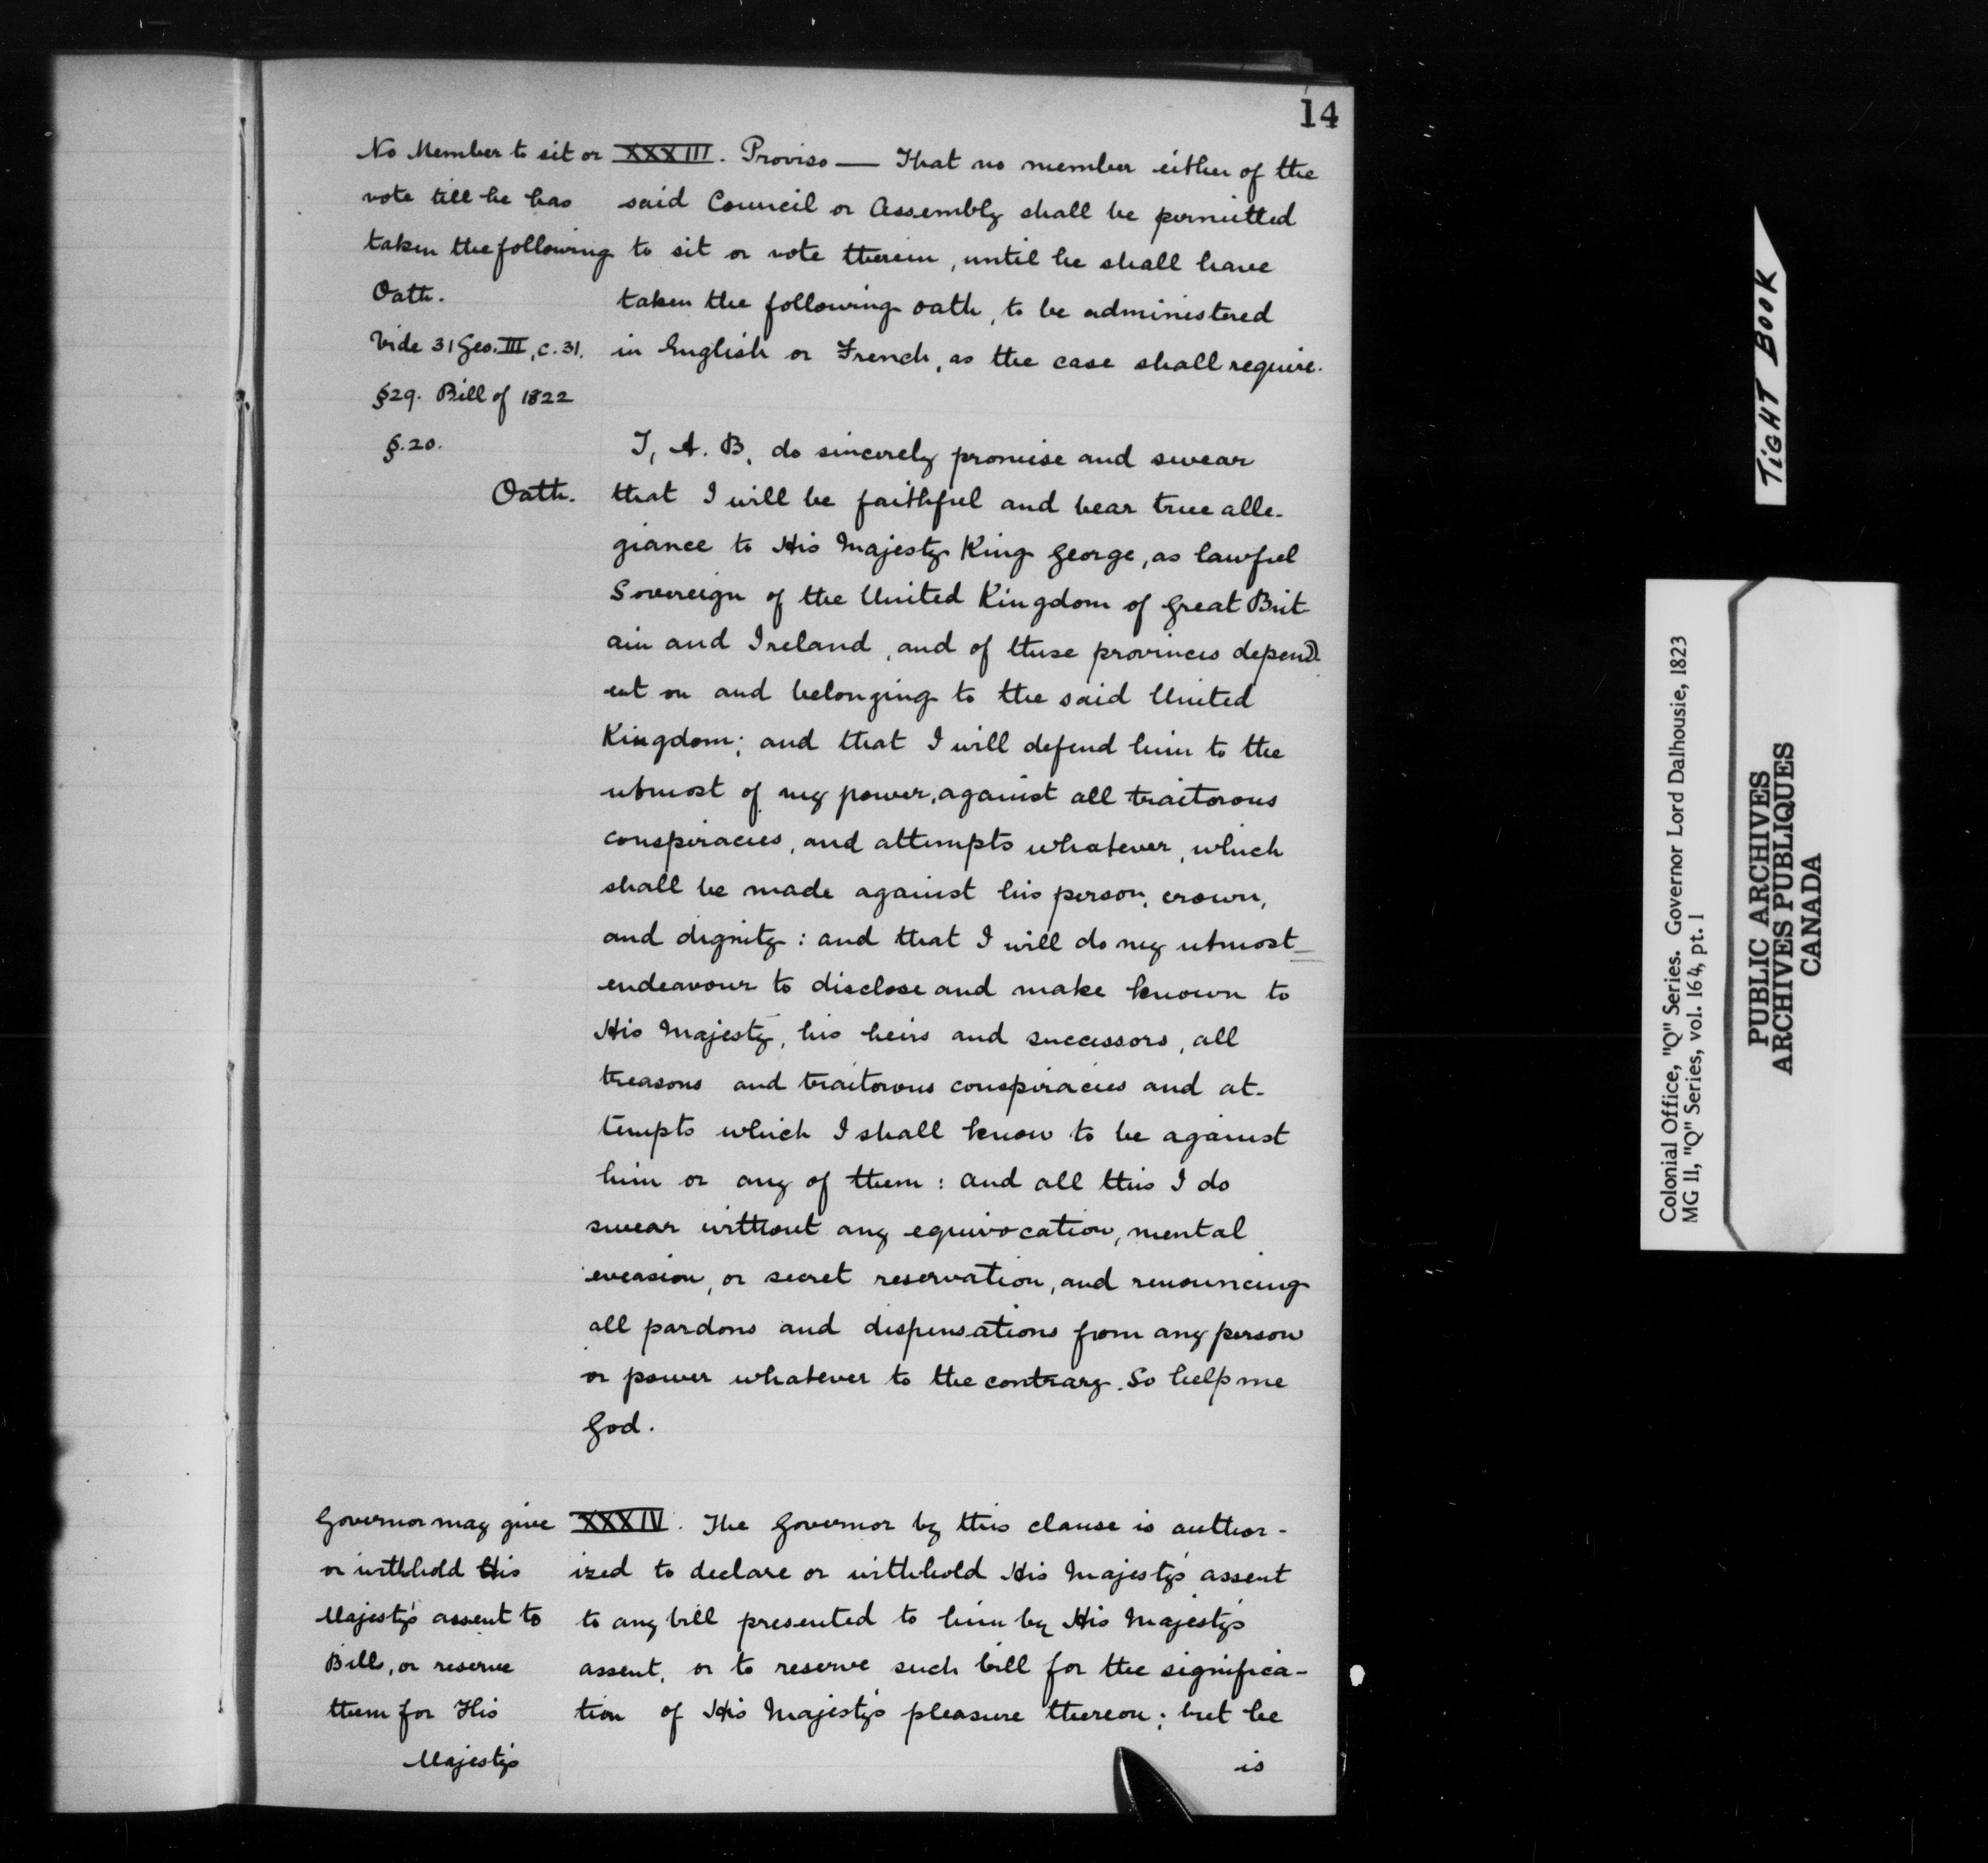 14
No Member to sit or
vote till he has
taken the following
Oath.
Vide 31 Geo. III, c. 31.
§29. Bill of 1822
§.20.
Oath.
XXXIII. Proviso — That no member either of the
said Council or Assembly shall be permitted
to sit or vote therein, until he shall have
taken the following oath, to be administered
in English or French, as the case shall require.
I, A. B, do sincerely promise and swear
that I will be faithful and bear true alle-
giance to His Majesty King George, as lawful
Sovereign of the United Kingdom of Great Brit-
ain and Ireland, and of these provinces depend-
ent on and belonging to the said United
Kingdom; and that I will defend him to the
utmost of my power, against all traitorous
conspiracies, and attempts whatever, which
shall be made against his person, crown,
and dignity: and that I will do my utmost
endeavour to disclose and make known to
His Majesty, his heirs and successors, all
treasons and traitorous conspiracies and at-
tempts which I shall know to be against
him or any of them: and all this I do
swear without any equivocation, mental
evasion, or secret reservation, and renouncing
all pardons and dispensations from any person
or power whatever to the contrary. So help me
God.
Governor may give
or withhold His
Majesty's assent to
Bills, or reserve
them for His
Majesty's
XXXIV. The Governor by this clause is author-
ized to declare or withhold His Majesty's assent
to any bill presented to him by His Majesty's
assent, or to reserve such bill for the significa-
tion of His Majesty's pleasure thereon; but he
is
TIGHT BOOK
Colonial Office, "Q" Series. Governor Lord Dalhousie, 1823
MG 11, "Q" Series, vol. 164, pt. 1
PUBLIC ARCHIVES
ARCHIVES PUBLIQUES
CANADA